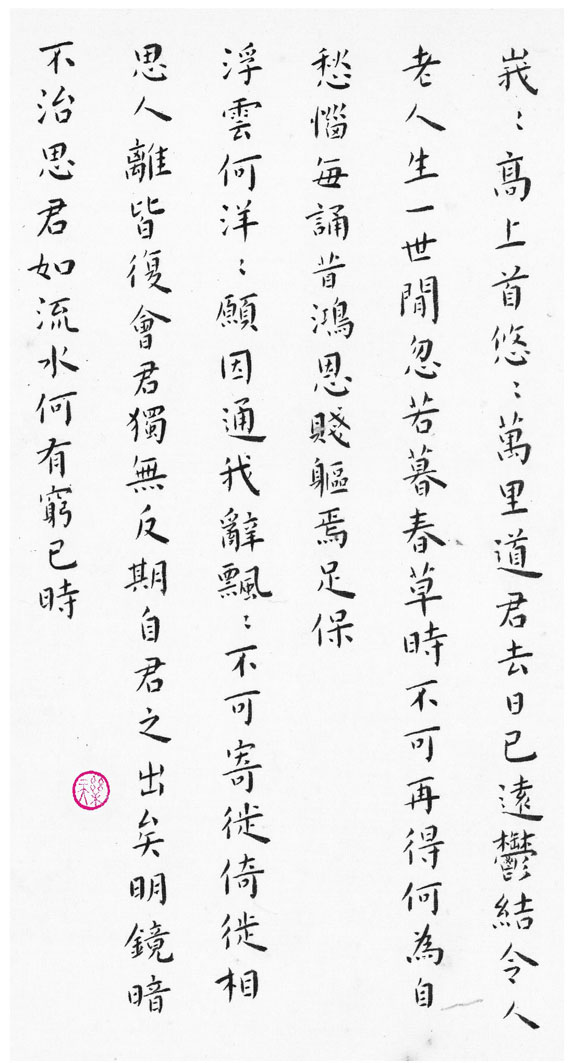 峩〻高上首悠〻萬里道君去日已遠鬱結令人
老人生一世閒忽若暮春草時不可再得何為自
愁惱每誦昔鴻恩賤軀焉足保
浮雲何洋〻願因通我辭飄〻不可寄徙倚徙相
思人離皆復會君獨無反期自君之出矣明鏡暗
不治思君如流水何有窮已時